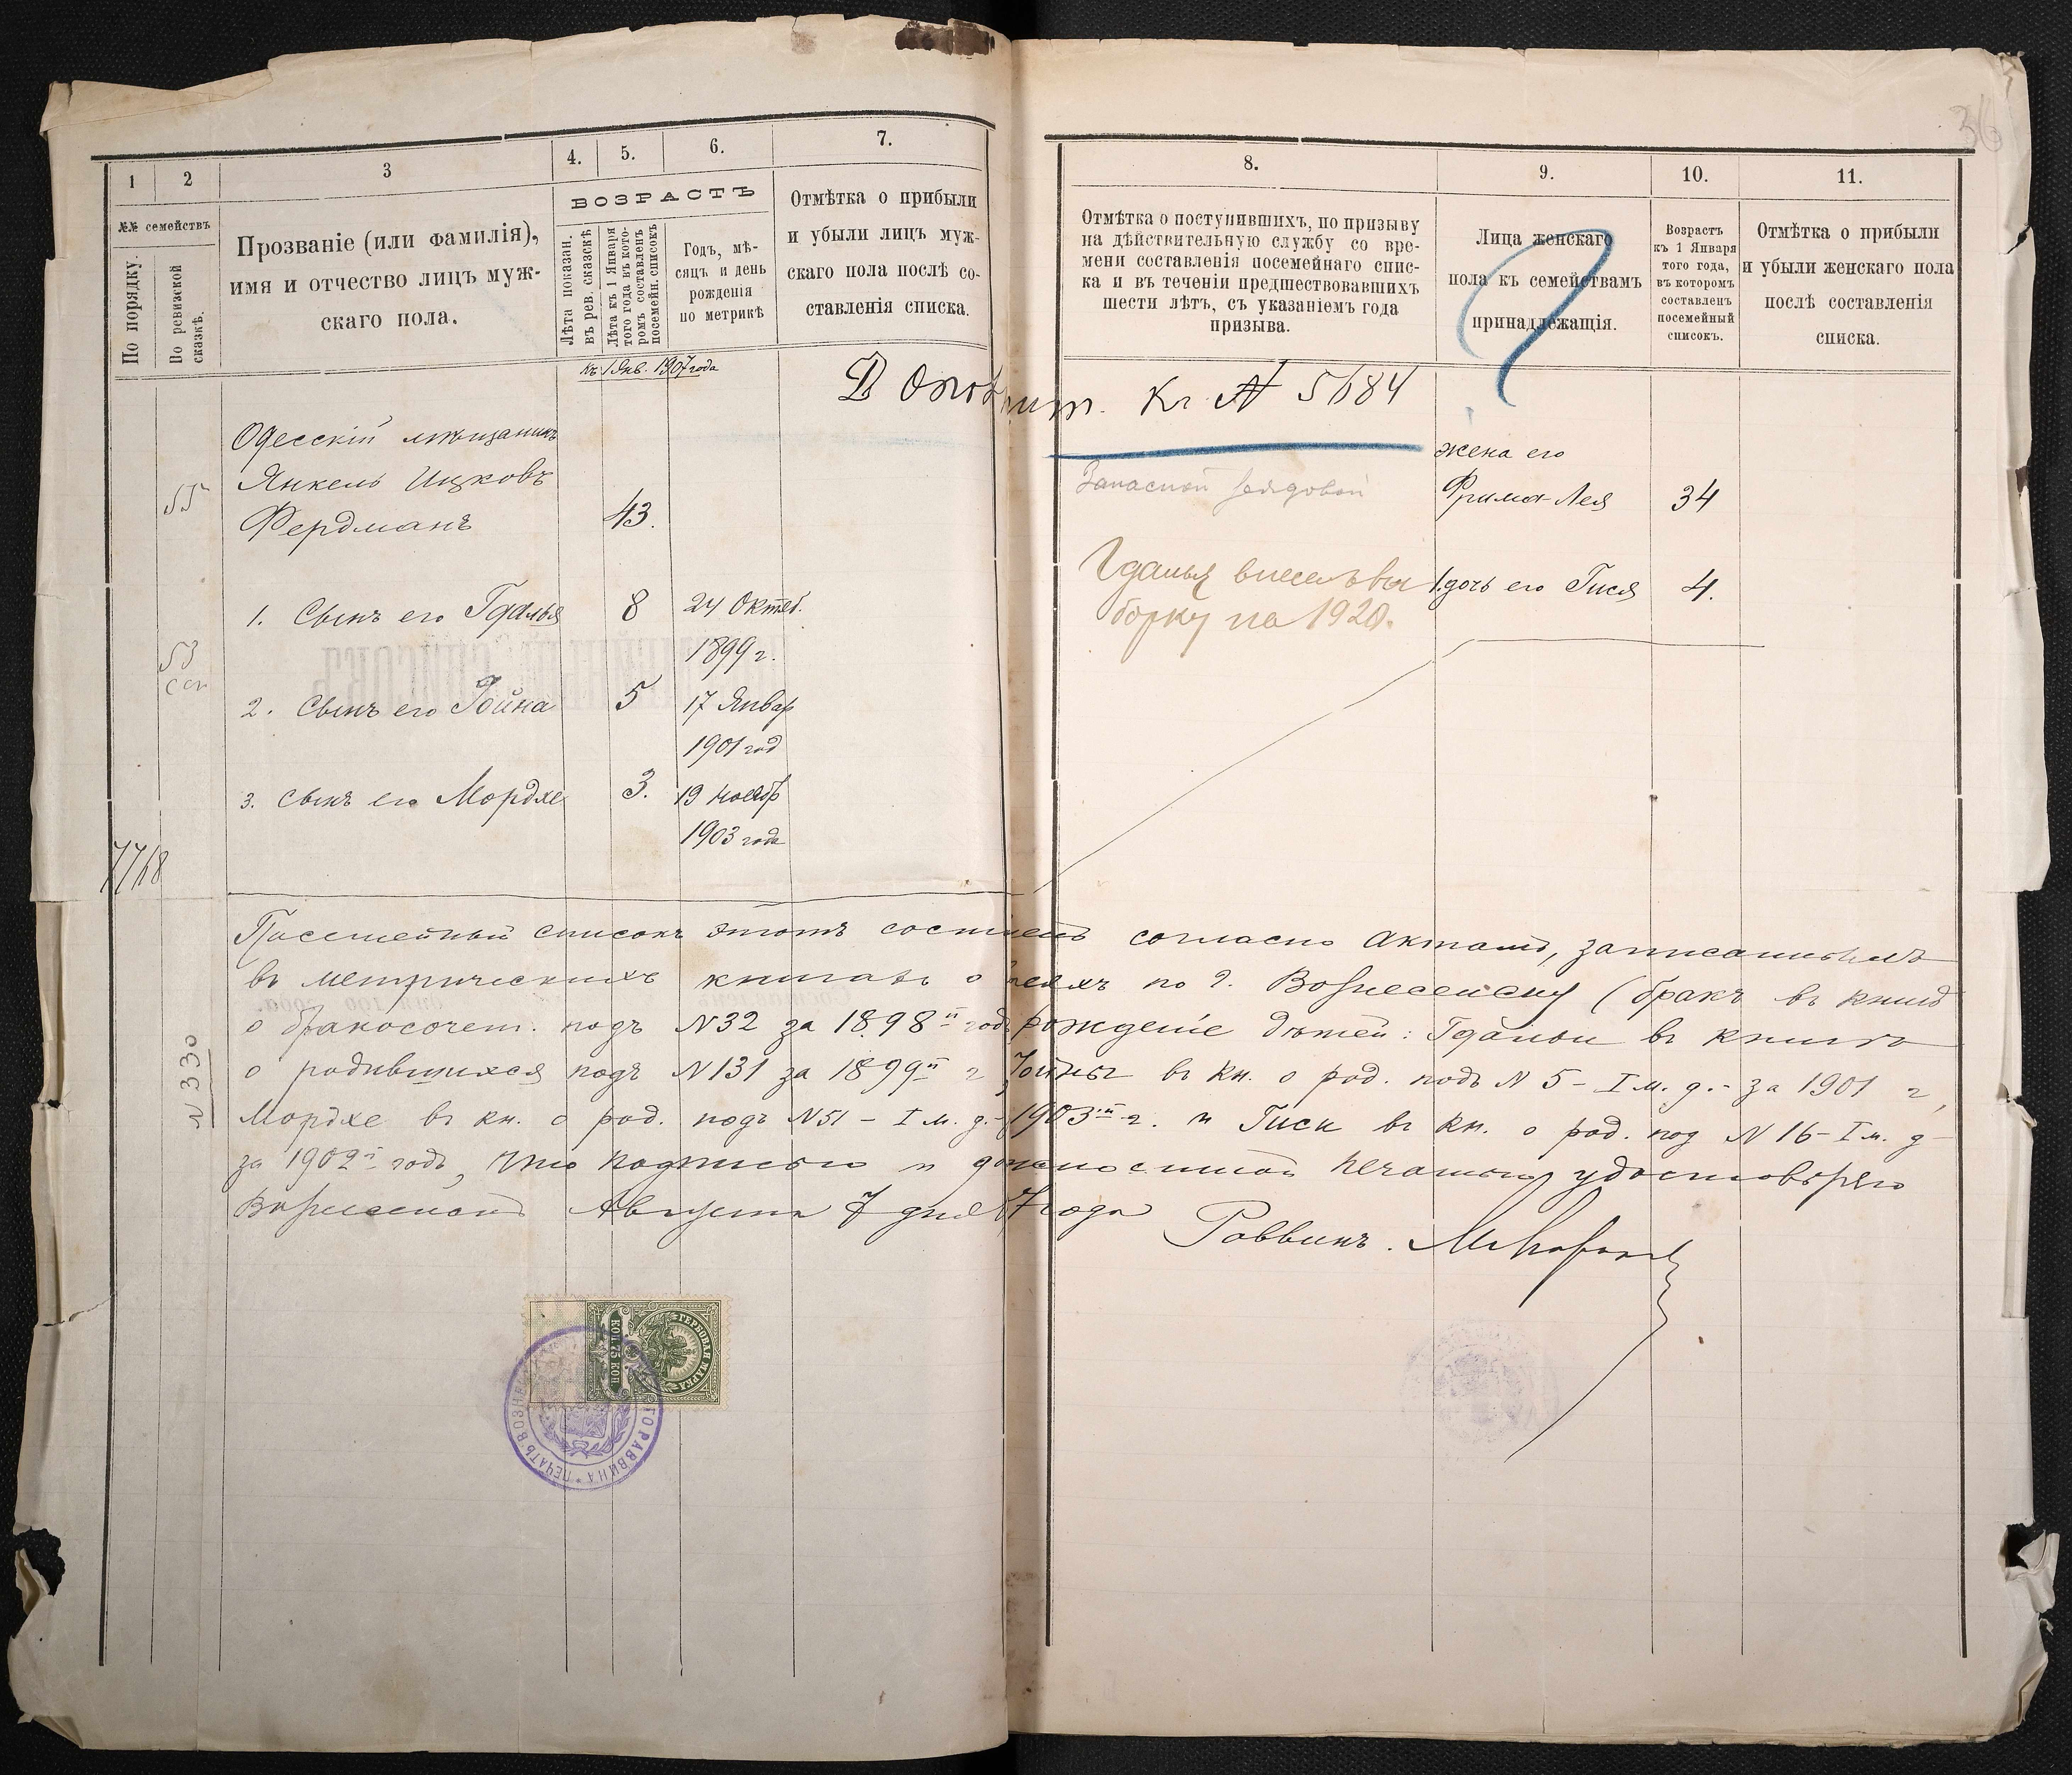 36
1
2
3
4.
5.
6.
7.
№№ семействъ
По порядку.
По ревизской сказкѣ.
Прозваніе (или фамилія),
имя и отчество лицъ муж-
скаго пола.
ВОЗРАСТЪ
Лѣта показан.
въ рев. сказкѣ
Лѣта къ 1 Января
того года въ кото-
ромъ составленъ
посемейн. списокъ
Годъ, мѣ-
сяцъ и день
рожденія
по метрикѣ
Отмѣтка о прибыли
и убыли лицъ муж-
скаго пола послѣ со-
ставленія списка.
8.
9.
10.
11.
Отмѣтка о поступившихъ, по призыву
на дѣйствительную службу со вре-
мени составленія посемейнаго спис-
ка и въ теченіи предшествовавшихъ
шести лѣтъ, съ указаніемъ года
призыва.
Лица женскаго
пола къ семействамъ
принадлежащія.
Возрастъ
къ 1 Января
того года,
въ которомъ
составленъ
посемейный
списокъ.
Отмѣтка о прибыли
и убыли женскаго пола
послѣ составленія
списка.
къ 1 Янв. 1907 года
къ № 5684
Одесскій мѣщанинъ
Янкель Ицковъ
Фердманъ
55
43.
Запасной рядовой
жена его
Фрима-Лея
34
1. Сынъ его Гдалья
8
24 Октяб.
1899 г.
Гдалья внесенъ в вы
борку на 1920.
1. дочь его Гися
4.
53
2. Сынъ его Іойна
5
17 Январ
1901 год
3. Сынъ его Мордхе
3.
19 Ноябр
1903 года
7768
Посемейный списокъ этотъ составленъ согласно актамъ, записаннымъ
въ метрическихъ книгахъ о евреяхъ по г. Вознесенску (бракъ въ книгѣ
о бракосочет. подъ N 32 за 1898й годъ рожденіе дѣтей: Гдальи въ книгѣ
о родившихся подъ N 131 за 1899й г Іойны въ кн. о род. подъ N 5 – I м. д. – за 1901 г,
Мордхе въ кн. о род. подъ N 51 – I м. д. – 1903й г. и Гиси въ кн. о род. под N 16 – I м. д –
за 1902й годъ, что подписью и должностной печатью удостовѣряю
Вознесенскъ Августа 7 дня 7 года
N 330
Раввинъ.
ГЕРБОВАЯ МАРКА
КОП. 75 КОП
ПЕЧАТЬ ВОЗНЕС
ГО РАВВИНА